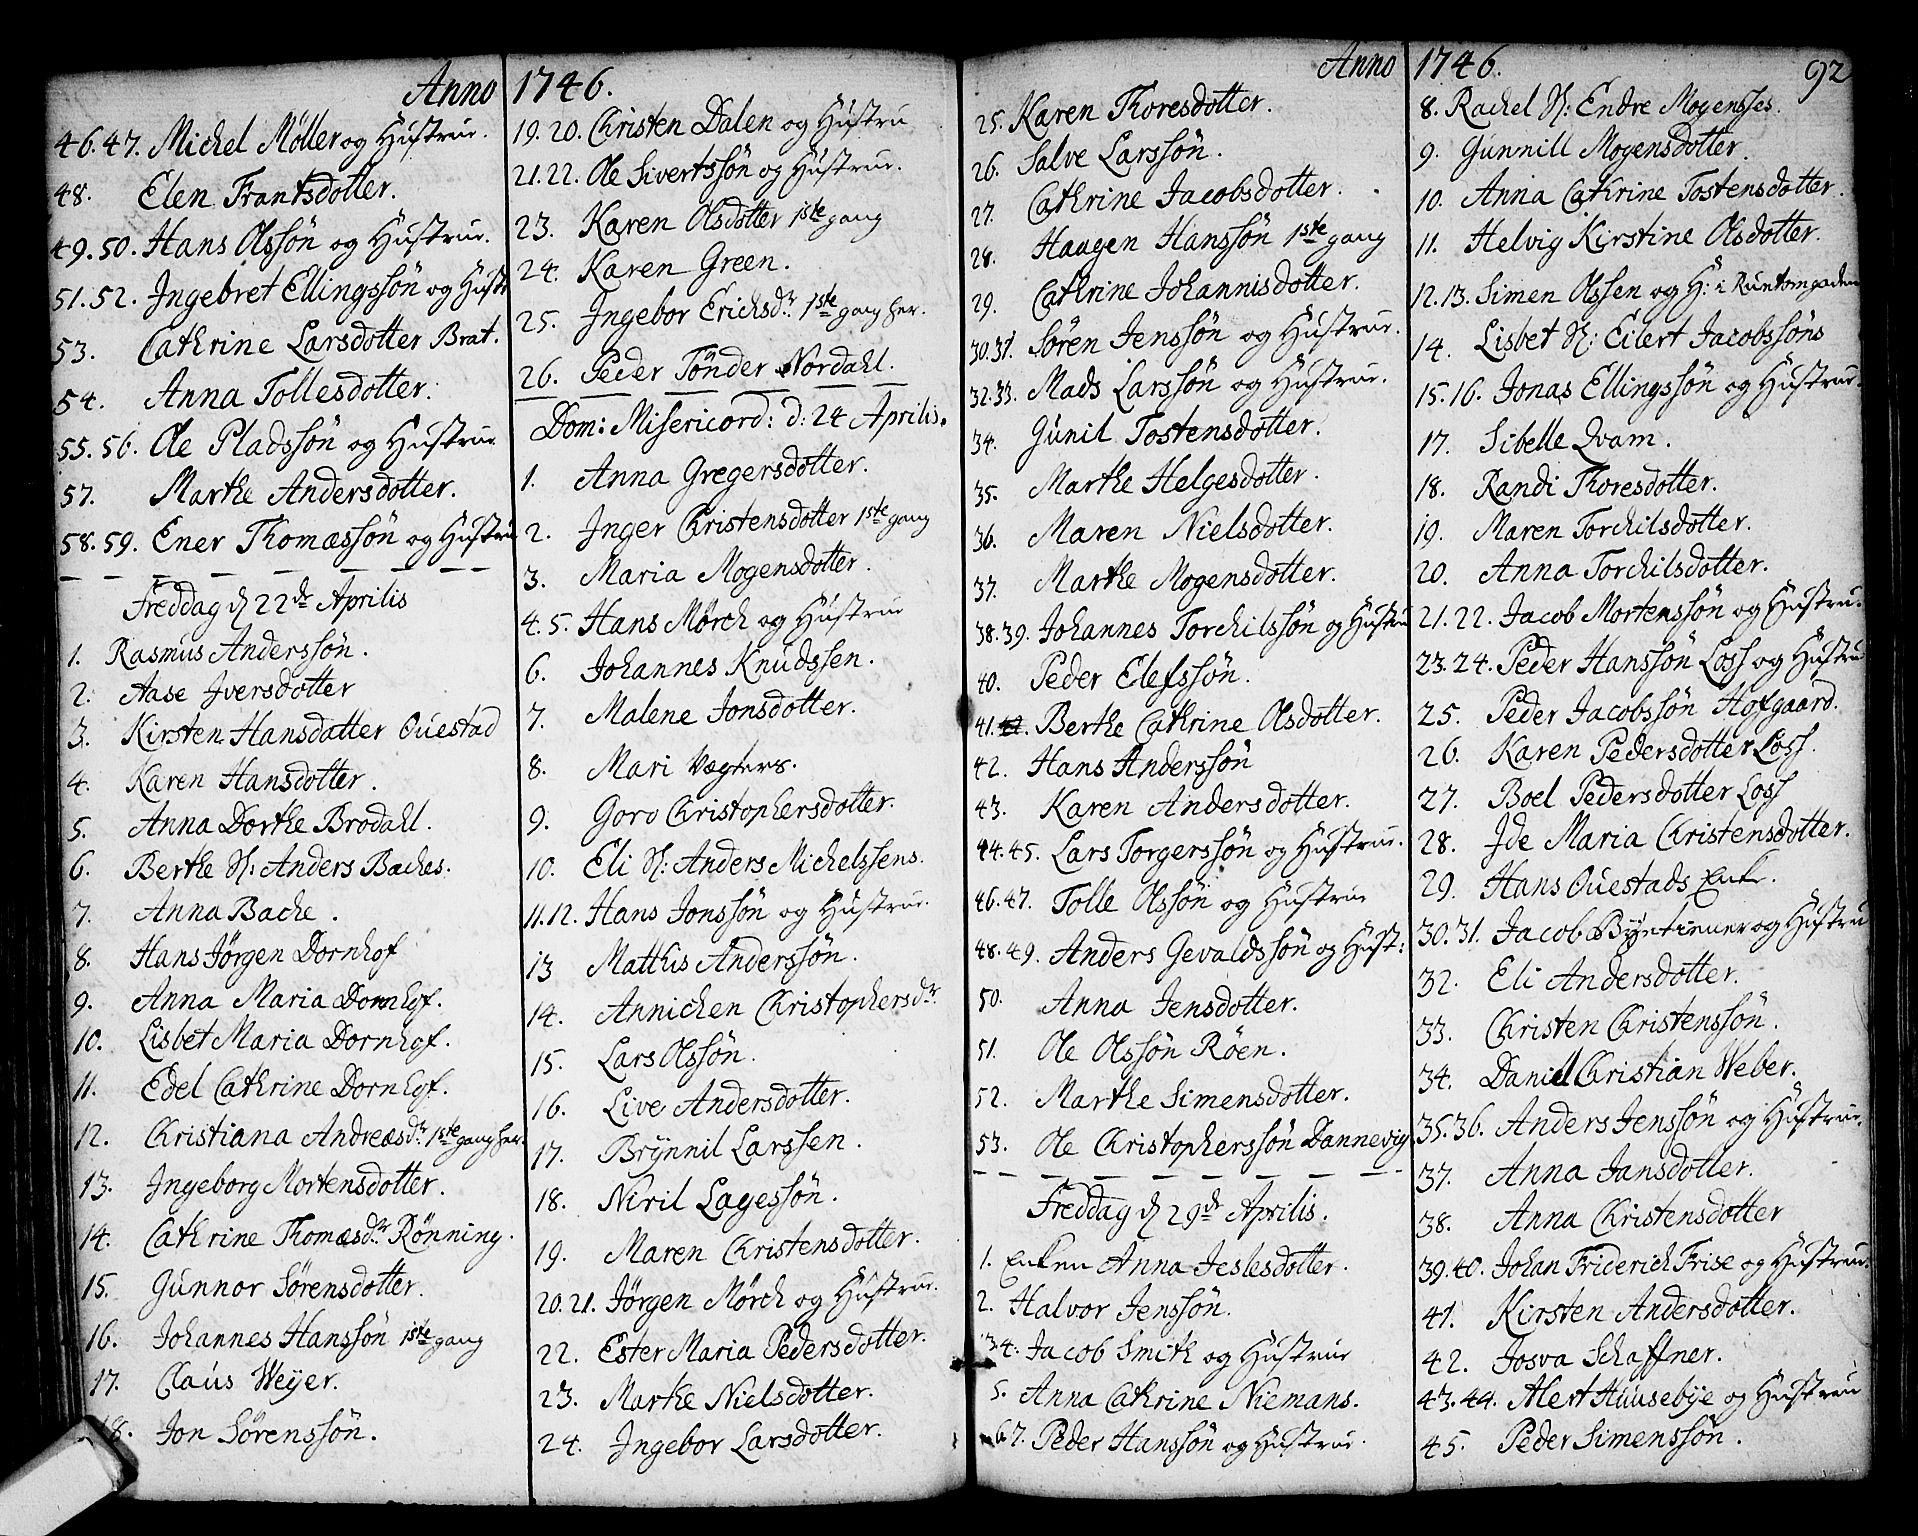 Anno 1746.
46.47. Michel Møller og Hustrue.
48. Elen Frantsdotter.
49.50. Hans Olssøn og Hustrue.
51.52. Ingebret Ellingssøn og Hustr
53. Cathrine Larsdotter Brat.
54. Anna Tollesdotter.
55.56. Ole Pladssøn og Hustrue
57. Marthe Andersdotter.
58.59. Ener Thomæssøn og Hustru
Freddag d 22de Aprilis
1. Rasmus Anderssøn.
2. Aase Iversdotter
3. Kirsten Hansdatter Ouestad
4. Karen Hansdotter.
5. Anna Dorthe Brodahl.
6. Berthe H: Anders Baches.
7. Anna Bache.
8. Hans Jørgen Dornhof
9. Anna Maria Dornhof.
10. Lisbet Maria Dornhof.
11. Edel Cathrine Dornhof.
12. Christiana Andreæsdr. 1ste gang her.
13. Ingeborg Mortensdotter.
14. Cathrine Thomæsdr. Rønning.
15. Gunnor Sørensdotter.
16. Johannes Hanssøn 1ste gang
17. Claus Weyer.
18. Jon Sørenssøn.
19.20. Christen Dalen og Hustru
21.22. Ole Sivertssøn og Hustrue.
23. Karen Olsdotter 1ste gang
24. Karen Green.
25. Ingebor Erichsdr. 1ste gang her.
26. Peder Tønder Nordahl.
Dom: Misericord: d: 24 Aprilis.
1. Anna Gregersdotter.
2. Inger Christensdotter 1ste gang
3. Maria Mogensdotter.
4.5. Hans Mørch og Hustrue
6. Johannes Knudssen.
7. Malene Jonsdotter.
8. Mari Vægters.
9. Goro Christophersdotter.
10. Eli H: Anders Michelssens.
11.12. Hans Jonssøn og Hustrue.
13 Matthis Anderssøn.
14. Annichen Christophersdr.
15. Lars Olssøn.
16. Live Andersdotter.
17. Brynnil Larssen.
18. Niril Lagessøn.
19. Maren Christensdotter.
20.21. Jørgen Mørch og Hustrue.
22. Ester Maria Pedersdotter.
23. Marthe Nielsdotter.
24. Ingebor Larsdotter.
Anno 1746. 92
25. Karen Thoresdotter.
26. Salve Larssøn.
27. Cathrine Jacobsdotter.
28. Haagen Hanssøn 1ste gang
29. Cathrine Johannisdotter.
30.31. Søren Jenssøn og Hustrue.
32.33. Mads Larssøn og Hustrue.
34. Gunil Tostensdotter.
35. Marthe Helgesdotter.
36. Maren Nielsdotter.
37. Marthe Mogensdotter.
38.39. Johannes Torchilssøn og Hustru
40. Peder Elefssøn.
41.42. Berthe Cathrine Olsdotter.
42. Hans Anderssøn
43. Karen Andersdotter.
44.45. Lars Torgerssøn og Hustrue.
46.47. Tolle Olssøn og Hustrue
48.49. Anders Gevaldssøn og Hust:
50. Anna Jensdotter.
51. Ole Olssøn Røen.
52. Marthe Simensdotter.
53. Ole Christopherssøn Dannevig
Freddag d 29de Aprilis.
1. Enken Anna Jeslesdotter.
2. Halvor Jenssøn.
3 4. Jacob Smith og Hustrue
5. Anna Cathrine Niemans.
6 7. Peder Hanssøn og Hustrue.
8. Rachel H: Endre Mogensses.
9. Gunnill Mogensdotter.
10. Anna Cathrine Tostensdotter.
11. Helvig Kirstine Olsdotter.
12.13. Simen Olssen og H: i Runtomgaden
14. Lisbet H: Eilert Jacobssøns
15.16. Jonas Ellingssøn og Hustrue.
17. Sibelle Qvam.
18. Randi Thoresdotter.
19. Maren Torchilsdotter.
20. Anna Torchilsdotter.
21.22. Jacob Mortenssøn og Hustru.
23.24. Peder Hanssøn Loss og Hustru
25. Peder Jacobssøn Hofgaard.
26. Karen Pedersdotter Loss.
27. Boel Pedersdotter Loss
28. Ide Maria Christensdotter.
29. Hans Ouestads Enke.
30.31. Jacob Byetiener og Hustru
32. Eli Andersdotter.
33. Christen Christenssøn.
34. Daniel Christian Weber.
35.36. Anders Jenssøn og Hustrue.
37. Anna Jansdotter.
38. Anna Christensdotter
39.40. Johan Friderich Frise og Hustrue.
41. Kirsten Andersdotter.
42. Josva Schaffner.
43.44. Alert Huusebye og Hustrue
45. Peder Simenssøn.